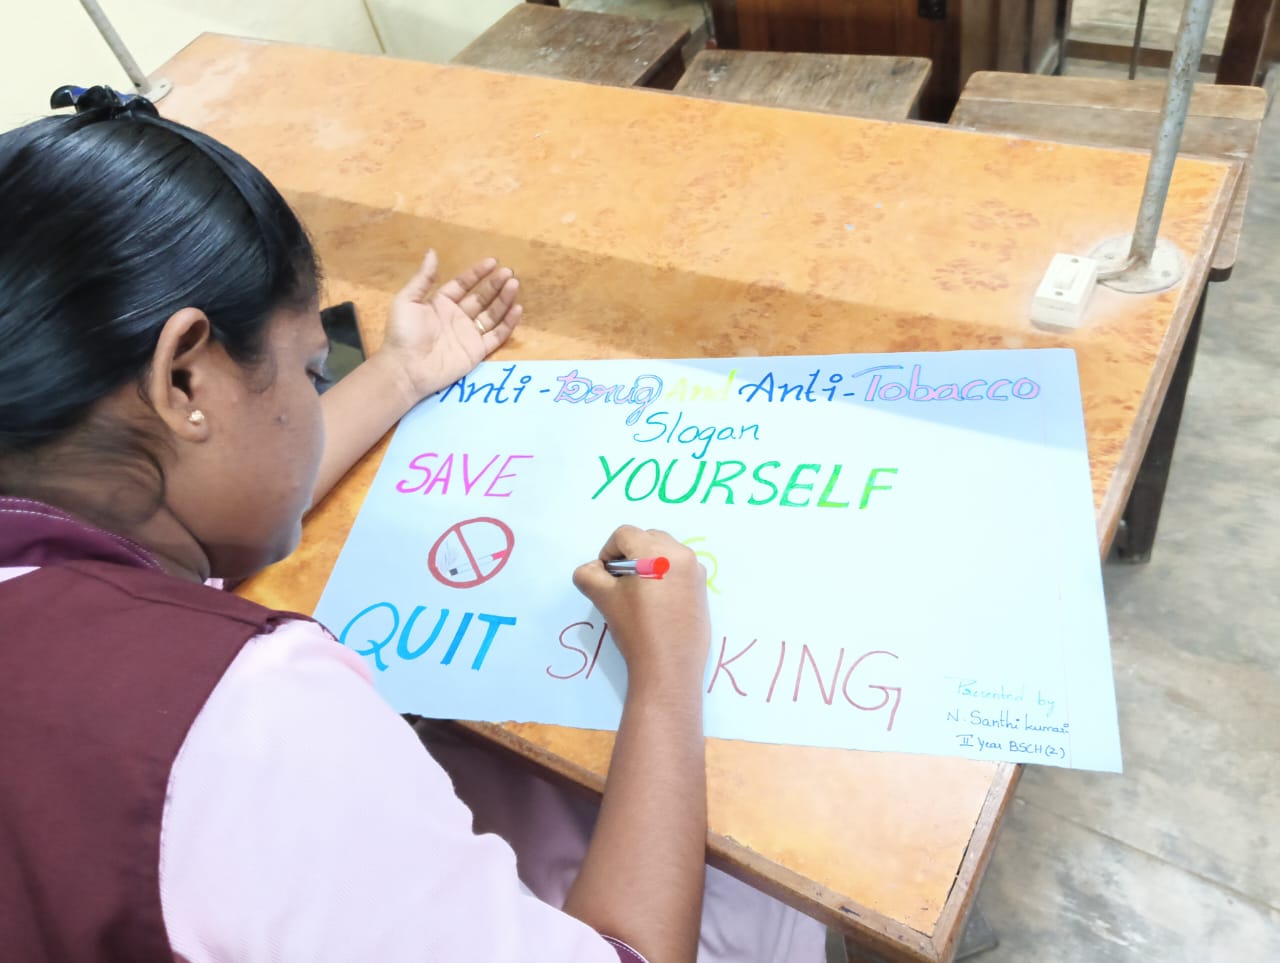 Anti-Drug And Anti-Tobacco
Slogan
SAVE YOURSELF
QUIT KING
Presented by
N. Santhi kumari
II Year BSCH(2)